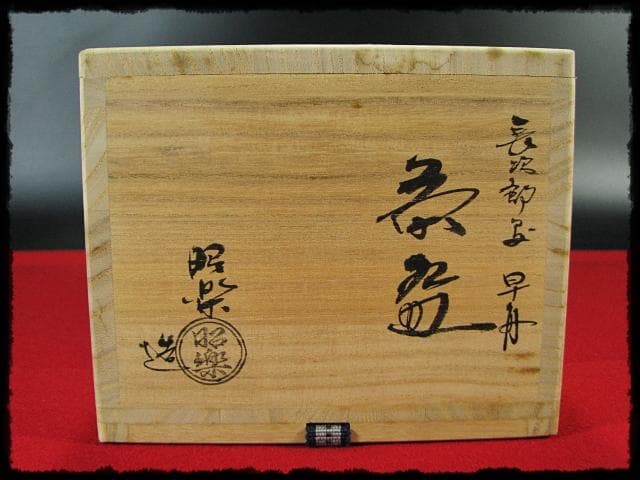 長次郎写 早舟
茶盌
昭樂
造
昭樂